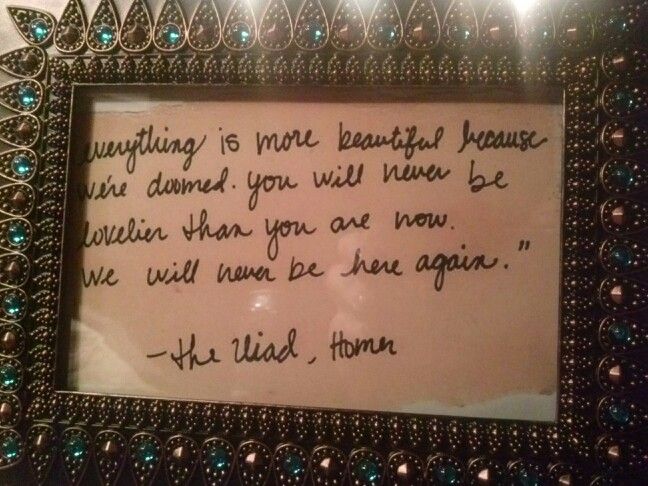 everything is more beautiful because
we're doomed. you will never be
lovelier than you are now.
we will never be here again."
-the Iliad, Homer